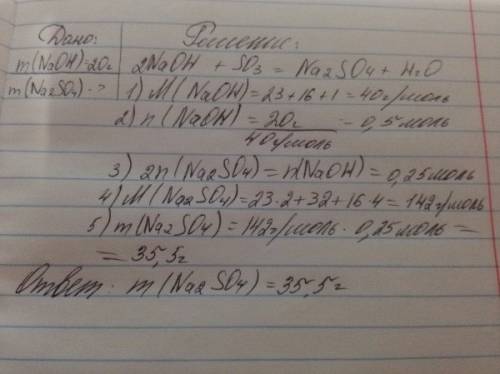 Дано:
Решение:
m(NaOH)=20г
2NaOH + SO3 = Na2SO4 + H2O
m(Na2SO4) - ?
1) M(NaOH)=23+16+1=40г/моль
2) n(NaOH)=20г/40г/моль = 0,5моль
3) 2n(Na2SO4)=n(NaOH)=0,25моль
4) M(Na2SO4)=23·2+32+16·4=142г/моль
5) m(Na2SO4)=142г/моль · 0,25моль =
= 35,5г
Ответ: m(Na2SO4)=35,5г